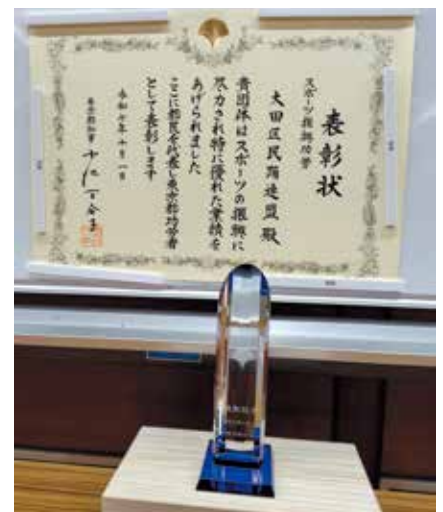 表彰状
スポーツ振興功労
大田区民踊連盟 殿
貴団体はスポーツの振興に
尽力され特に優れた業績を
あげられました
ここに都民を代表し東京都功労者
として表彰します
令和七年十月一日
東京都知事 小池百合子